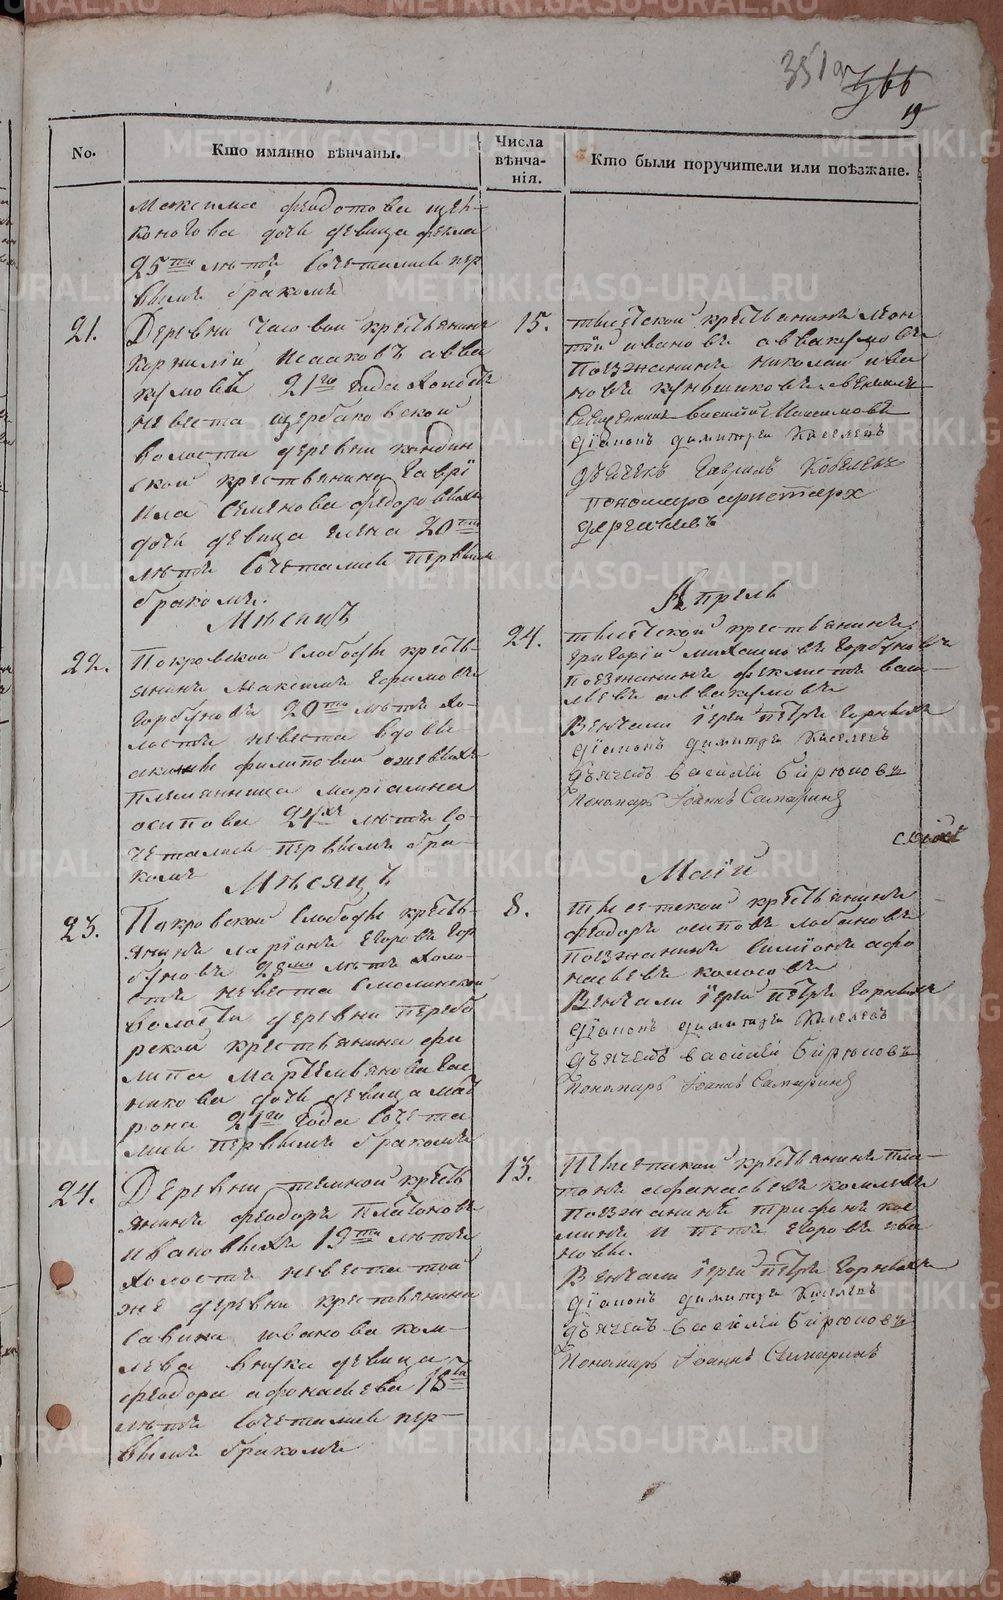 351
366
19
No.
Кто имянно вѣнчаны.
Числа
вѣнча-
нія.
Кто были поручители или поѣзжане.
Максима Феодотова щел-
коногова дочь девица Фекла
25ти летъ сочетались пер
вымъ бракомъ
21.
Деревни Часовой крестьянинъ
Корнилiй Исааковъ авва
кумовъ 21го года холостъ
невеста щербаковской
волости деревни кондин
ской крестьянина Гаврi
ила Семенова
дочь девица Елена 20ти
летъ сочетались первымъ
бракомъ.
15.
крестьянинъ Леон
тiй ивановъ аввакумовъ
поезжанинъ николай ива
новъ венчалъ
Священникъ Василiй Максимовъ
Дiаконъ Димитрiй Киселевъ
дьячекъ Гаврилъ Кобелевъ
пономарь аристархъ
Дерябинъ
Месяцъ
Апрель
22.
Покровской Слободы кресть-
янинъ Максимъ Ефимовъ
Горбуновъ 20ти летъ хо-
лостъ невеста вдовы
акилины филиповой
племянница Марiамна
осипова 24хъ летъ со-
четались первымъ бра-
комъ
24.
крестьянинъ
Григорiй Михайловъ Горбуновъ
поезжанинъ васи-
льевъ аввакумовъ
Венчали iерей петръ Горныхъ
Дiаконъ Димитрiй Киселевъ
Дьячекъ Василiй Бирюковъ
Пономарь Iоаннъ Самаринъ
Месяцъ
Маiй
23.
Покровской Слободы кресть-
янинъ Ларiонъ Егоровъ Гор
буновъ 28ми летъ холо-
стъ невеста Смолинской
волости деревни перебо
рской крестьянина фи
липа Мартемьянова
никова дочь девица мат
рона 21го года сочета
лись первымъ бракомъ
8.
крестьянинъ
Феодоръ осиповъ лобановъ
поезжанинъ Симеонъ афо
насьевъ колосовъ
Венчали iерей петръ Горныхъ
Дiаконъ Димитрiй Киселевъ
Дьячекъ Василiй Бирюковъ
Пономарь Iоаннъ Самаринъ
24.
Деревни темной кресть
янинъ Феодоръ Платоновъ
ивановыхъ 19ти летъ
холостъ невеста той
же деревни крестьянина
Савина иванова ком-
лева внука девица
феодора афонасьева 18ти
летъ сочетались пер-
вымъ бракомъ
13.
крестьянинъ Пла-
тонъ Афанасьевъ комлевъ
поезжанинъ трифонъ
и петръ Егоровъ ива
новы.
Венчали iерей петръ Горныхъ
Дiаконъ Димитрiй Киселевъ
Дьячекъ Василiй Бирюковъ
Пономарь Iоаннъ Самаринъ
METRIKI.GASO-URAL.RU